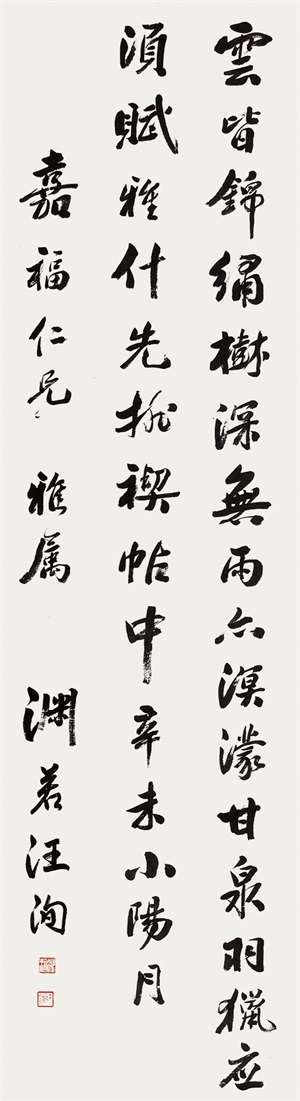 雲皆錦繡樹深無雨亦溟濛甘泉羽獵应
須賦雅什先挑禊帖中辛未小陽月
嘉福仁兄 雅属 淵若汪洵